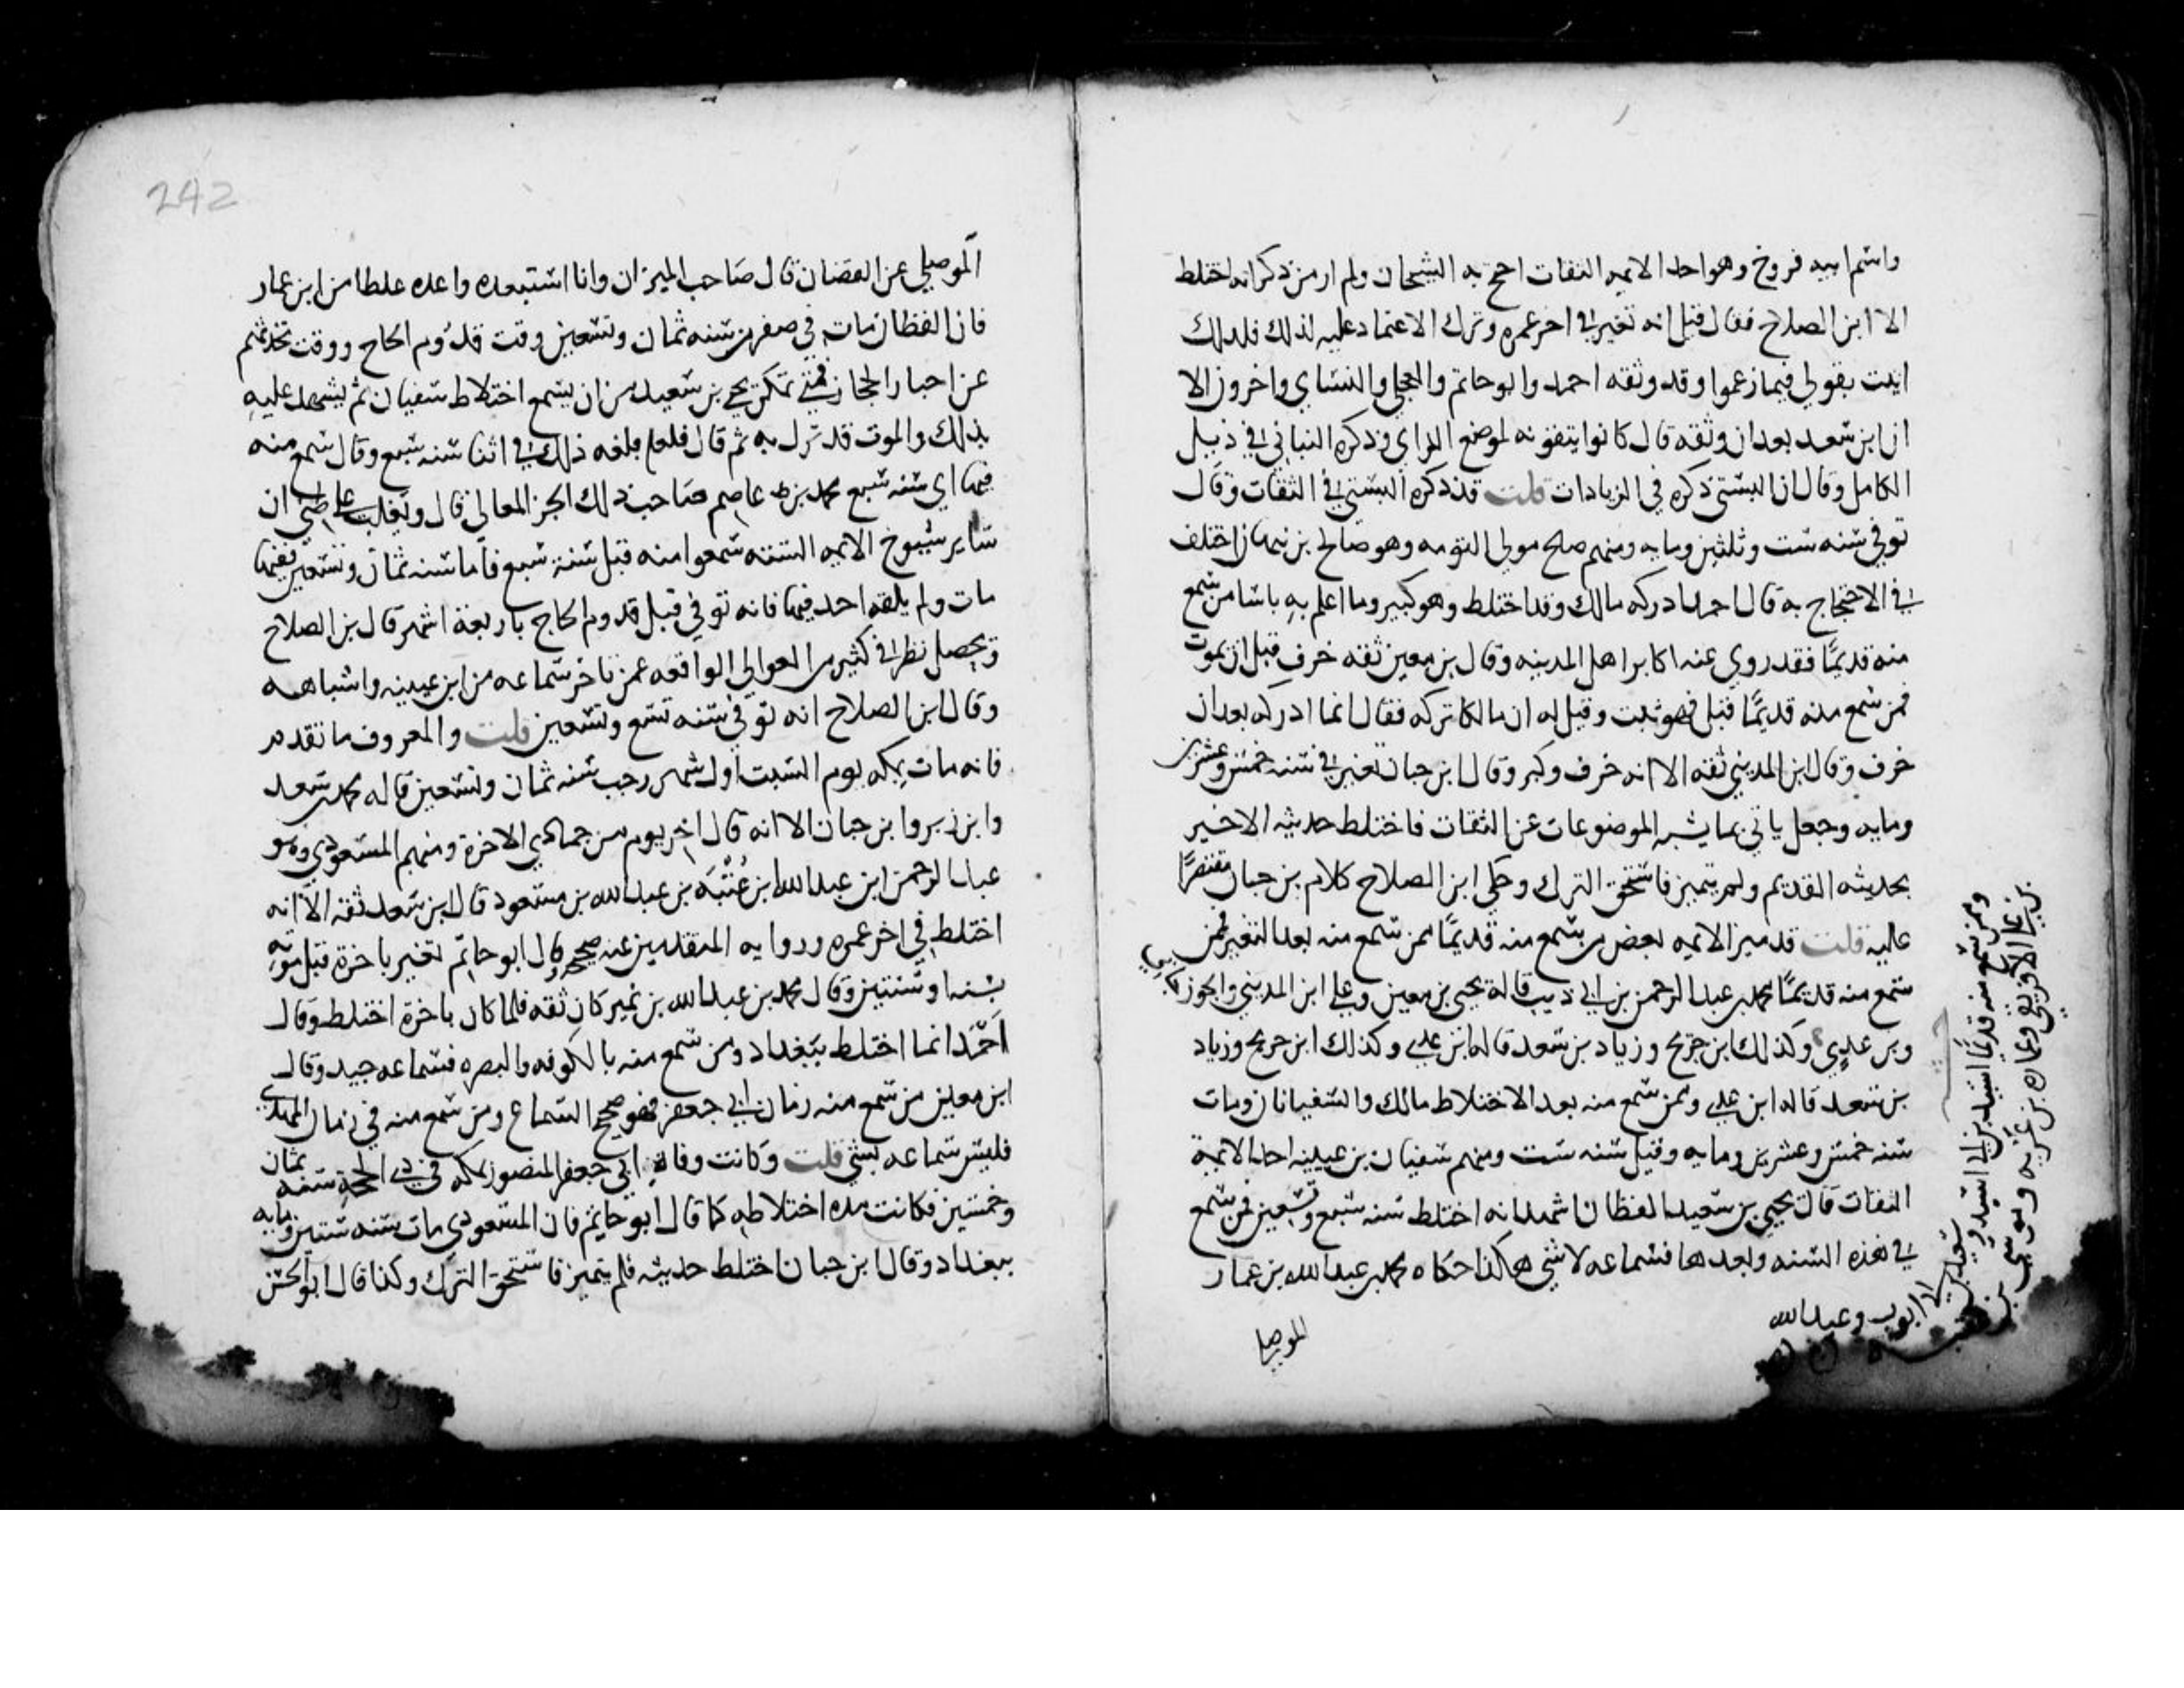 واسم ابيه فروخ وهو احد الايمه الثقات احتج به الشيخان ولم ار من ذكر انه اختلط
الا ابن الصلاح فقال قيل انه تغير في اخر عمره وترك الاعتماد عليه لذلك فلذلك
اتيت بقولي فيما زعموا وقد وثقه احمد وابو حاتم والعجلي والنسائي واخرون الا
ان ابن سعد بعد ان وثقه قال كانوا يتقونه لموضع الراي وذكره النباتي في ذيل
الكامل وقال ان البستي ذكره في الزيادات قلت قد ذكره البستي في الثقات وقال
توفي سنه ست وثلثين ومايه ومنهم صلح مولى التومه وهو صالح بن نبهان اختلف
في الاحتجاج به قال احمد ادركه مالك وقد اختلط وهو كبير وما اعلم به باسا من سمع
منه قديمًا فقد روي عنه اكابر اهل المدينه وقال بن معين ثقه خرف قبل ان يموت
فمن سمع منه قديمًا قبل فهو ثبت وقيل له ان مالكا تركه فقال انما ادركه بعد ان
خرف وقال ابن المديني ثقه الا انه خرف وكبر وقال ابن حبان تغير في سنه خمس وعشرين
ومايه وجعل ياتي بما يشبه الموضوعات عن الثقات فاختلط حديثه الاخير
بحديثه القديم ولم يتميز فاستحق الترك وحكى ابن الصلاح كلام بن حبان مقتصرًا
عليه قلت قد ميز الايمه بعض من سمع منه قديمًا ممن سمع منه بعد التغير فمن
سمع منه قديمًا محمد بن عبد الرحمن بن ابي ذيب قاله يحيى بن معين وعلي ابن المديني والجوزجاني
وبن عدي وكذلك ابن جريج وزياد بن سعد قاله ابن عدي وكذلك ابن جريج وزياد
بن سعد قاله ابن عدي وممن سمع منه بعد الاختلاط مالك والسفيانان ومات
سنه خمس وعشرين ومايه وقيل سنه ست ومنهم سفيان بن عيينه احد الايمة
الثقات قال يحيى بن سعيد القطان اشهد انه اختلط سنه سبع وتسعين فمن سمع
في هذه السنه وبعدها فسماعه لا شي هكذا حكاه محمد بن عبد الله بن عمار
الموصلي
وممن سمع منه قديمًا اسيد بن ابي اسيد و
سعيد بن ابي ايوب وعبد الله
بن علي الافريقي وعماره بن غزيه وموسى بن عقبه
242
الموصلي عن القطان قال صاحب الميزان وانا استبعده واعده غلطا من ابن عمار
فان القطان مات في صفر من سنه ثمان وتسعين وقت قدوم الحاج ووقت تحدثهم
عن اخبار الحجاز فمتى تمكن يحيى بن سعيد من ان يسمع اختلاط سفيان ثم يشهد عليه
بذلك والموت قد نزل به ثم قال فلعله بلغه ذلك في اثنا سنه سبع وقال سمع منه
فيها اي سنه سبع محمد بن عاصم صاحب ذلك الجزء العالي قال ويغلب على ظني ان
ساير شيوخ الايمه الستة سمعوا منه قبل سنة سبع فاما سنه ثمان وتسعين ففيها
مات ولم يلقه احد فيها فانه توفي قبل قدوم الحاج باربعة اشهر قال بن الصلاح
ويحصل نظر في كثير من العوالي الواقعه عمن تاخر سماعه من ابن عيينه واشباهه
وقال ابن الصلاح انه توفي سنه تسع وتسعين قلت والمعروف ما تقدم
فانه مات بمكه يوم السبت اول شهر رجب سنه ثمان وتسعين قاله محمد بن سعد
وابن زبر وابن حبان الا انه قال اخر يوم من جمادي الاخرة ومنهم المسعودي وهو
عبد الرحمن ابن عبد الله ابن عُتْبَه بن عبد الله بن مسعود قال ابن سعد ثقه الا انه
اختلط في اخر عمره وروايه المتقدمين عنه صحيحه وقال ابو حاتم تغير باخرة قبل موته
بسنه او سنتين وقال محمد بن عبد الله بن نمير كان ثقه فلما كان باخرة اختلط وقال
احمد انما اختلط ببغداد ومن سمع منه بالكوفه والبصره فسماعه جيد وقال
ابن معين من سمع منه زمان ابي جعفر فهو صحيح السماع ومن سمع منه في زمان المهدي
فليس سماعه بشي قلت وكانت وفاة ابي جعفر المنصور بمكه في ذي الحجة سنه ثمان
وخمسين فكانت مده اختلاطه كما قال ابو حاتم فان المسعودي مات سنه ستين ومايه
ببغداد وقال ابن حبان اختلط حديثه فلم يتميز فاستحق الترك وكذا قال ابو الحسن